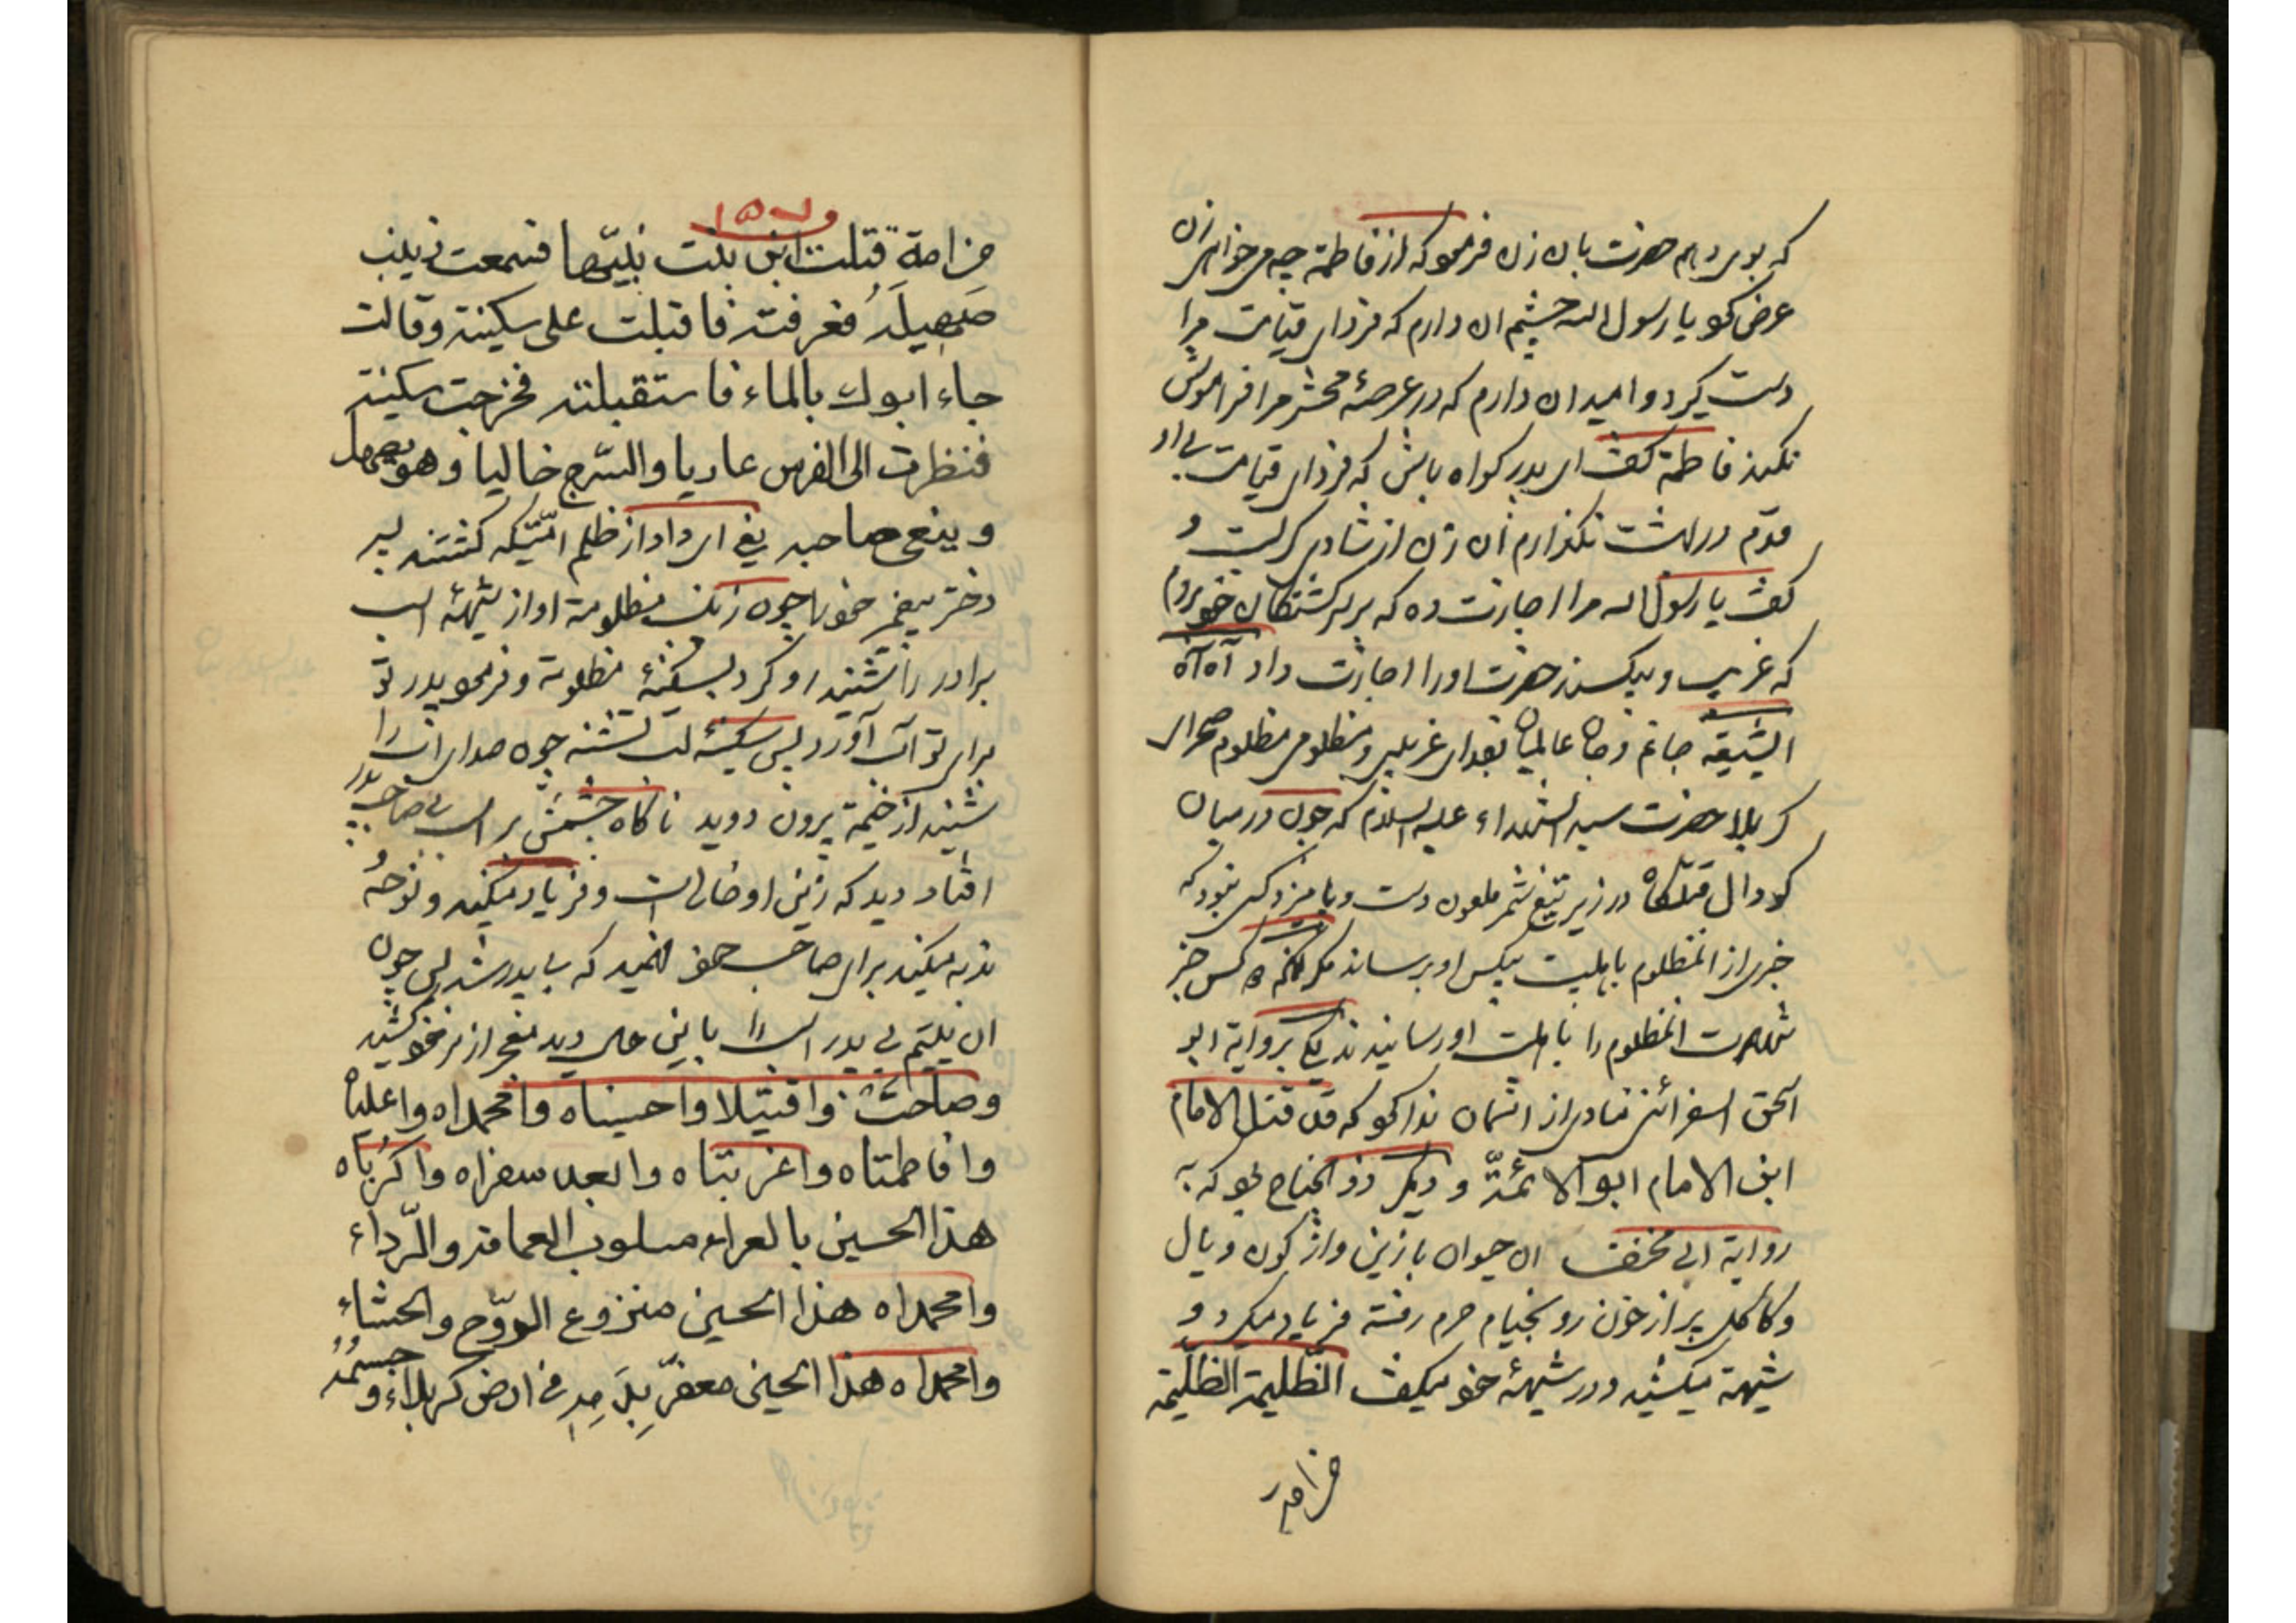 که بوی دهم حضرت بان زن فرموکه از فاطمة چه میخواهی زن
عرض کو یا رسول الله چشم ان دارم که فردای قیامت مرا
دست کیرد و امید ان دارم که در عرصهٔ محشر مرا فراموش
نکیند فاطمة کفت ای پدر کواه باش که فردای قیامت بی او
قدم در بهشت نکذارم ان زن از شادی کریست و
کفت یا رسول الله مرا اجازت ده که بر سر کشتکان خو بروم
که غریب و بیکسند حضرت اورا اجازت داد آه آه
الشیعة جانم و جان عالمیان بفدای غریبی و مظلومی مظلوم صحرای
کربلا حضرت سید الشهداء علیه السلام که چون در میان
کودال قتلکاه در زیر تیغ شمر ملعون دست و پا میزد کسی نبود که
خبری از انمظلوم باهلبیت بیکس او برساند مکر انکه کس خبر
شهادت انمظلوم را باهلبیت او رسانیدند یکی بروایة ابو
اسحق اسفرائنی منادی از اسمان ندا کو که قد قتل الامام
ابن الامام ابو الائمّة و دیکر ذو الجناح بو که به
روایة ابی مخنف ان حیوان با زین واژکون و یال
و کاکل پر از خون رو بخیام حرم رفته فریاد میکرد و
شیهة میکشید و در شیههٔ خو میکفت الظّلیمة الظّلیمة
من امة
١٥٧
من امة قتلت ابن بنت نبیّها فسمعت زینب
صَهیلَهُ فعرفته فاقبلت علی سکینة وقالت
جاء ابوك بالماء فاستقبلته فخرجت سکینة
فنظرت الی الفرس عاریا والسّرج خالیا وهو یصهل
و ینعی صاحبه یعنی ای داد از ظلم امّتیکه کشتند پسر
دختر پیغمبر خو را چون زینب مظلومة اواز شیههٔ اسب
برادر را شنید رو کرد بسکینهٔ مظلومة و فرمو پدر تو
برای تو آب آورد پس سکینهٔ لب تشنه چون صدای اسب را
شنید از خیمة بیرون دوید ناکاه چشمش بر اسب بی صاحب پدر
افتاد دید که زین او خالی است و فریاد میکند و نوحه و
ندبه میکند برای صاحب خو فهمید که بی پدر شد پس چون
ان یتیم بی پدر اسب را باین حال دید مقنعه از سر خو کشید
وصاحت واقتیلا واحسیناه وامحمداه واعلیاه
وافاطمتاه واغربتاه وابعد سفراه واکرباه
هذا الحسین بالعراء مسلوب العمامة والرّداء
وامحمداه هذا الحسین منزوع الروّح والحشاء
وامحمداه هذا الحسین معفرّ بِدَمِهِ فی ارض کربلاء و جسمُهُ